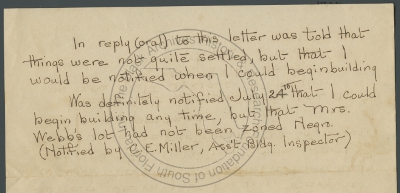 In reply (oral) to this letter was told that
things were not quite settled, but that I
would be notified when I could begin building
Was definitely notified July 24th that I could
begin building any time, but that Mrs.
Webb's lot had not been zoned Negro.
(Notified by E. Miller, Ass't. Bldg. Inspector)